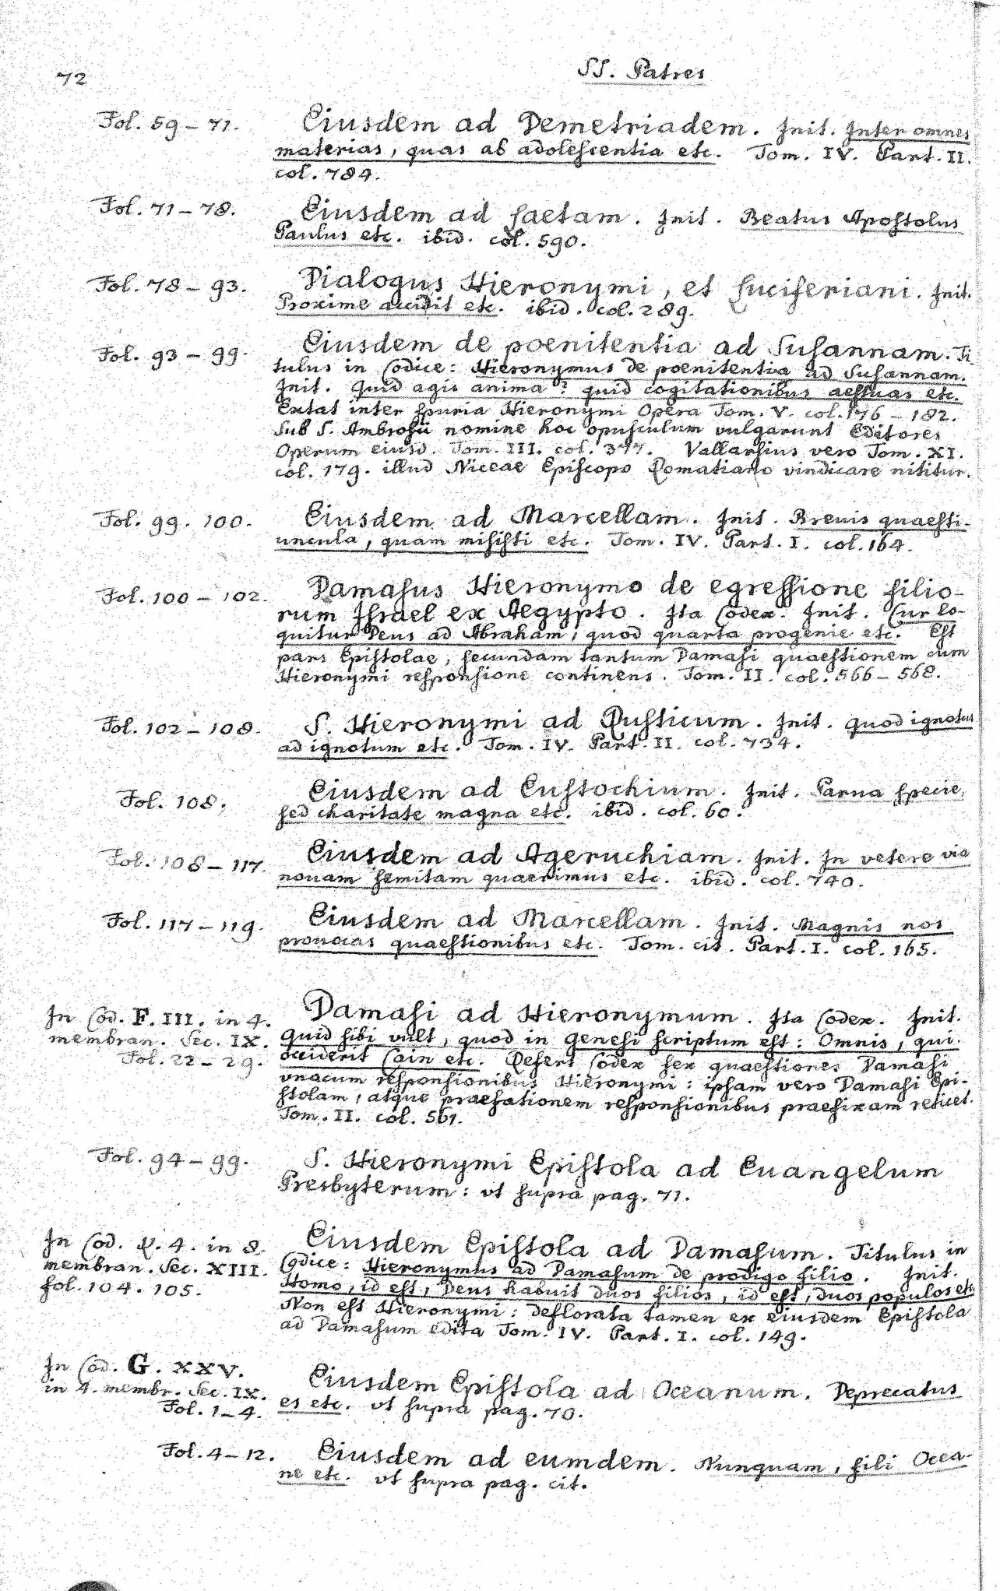 72
SS. Patres
Fol. 59 – 71.
Eiusdem ad Demetriadem. Init. Inter omnes
materias, quas ab adolescentia etc. Tom. IV. Part. II.
col. 784.
Fol. 71 – 78.
Eiusdem ad Laetam. Init. Beatus Apostolus
Paulus etc. ibid. col. 590.
Fol. 78 – 93.
Dialogus Hieronymi, et Luciferiani. Init.
Proxime accidit etc. ibid. col. 289.
Fol. 93 – 99.
Eiusdem de poenitentia ad Susannam. Ti
tulus in Codice: Hieronymus de poenitentia ad Susannam.
Init. Quid agis anima? quid cogitationibus aestuas etc.
Extat inter spuria Hieronymi Opera Tom. V. col. 176 – 182.
Sub S. Ambrosii nomine hoc opusculum vulgarunt Editores
Operum eiusd. Tom. III. col. 377. Vallarsius vero Tom. XI.
col. 179. illud Niceae Episcopo Romatiano vindicare nititur.
Fol. 99. 100.
Eiusdem ad Marcellam. Init. Breuis quaesti-
uncula, quam misisti etc. Tom. IV. Part. I. col. 164.
Fol. 100 – 102.
Damasus Hieronymo de egressione filio-
rum Israel ex Aegypto. Ita Codex. Init. Cur lo-
quitur Deus ad Abraham, quod quarta progenie etc. Est
pars Epistolae, secundam tantum Damasi quaestionem cum
Hieronymi responsione continens. Tom. II. col. 566 – 568.
Fol. 102 – 108.
S. Hieronymi ad Rusticum. Init. Quod ignotus
ad ignotum etc. Tom. IV. Part. II. col. 734.
Fol. 108.
Eiusdem ad Eustochium. Init. Parua specie,
sed charitate magna etc. ibid. col. 60.
Fol. 108 – 117.
Eiusdem ad Ageruchiam. Init. In vetere via
nouam semitam quaerimus etc. ibid. col. 740.
Fol. 117 – 119.
Eiusdem ad Marcellam. Init. Magnis nos
prouocas quaestionibus etc. Tom. cit. Part. I. col. 165.
In Cod. F. III. in 4.
membran. Sec. IX.
Fol. 22 – 29.
Damasi ad Hieronymum. Ita Codex. Init.
Quid sibi vult, quod in Genesi scriptum est: Omnis, qui
occiderit Cain etc. Refert Codex sex quaestiones Damasi
vnacum responsionibus Hieronymi: ipsam vero Damasi Epi-
stolam, atque praefationem responsionibus praefixam reticet.
Tom. II. col. 561.
Fol. 94 – 99.
S. Hieronymi Epistola ad Euangelum
Presbyterum: vt supra pag. 71.
In Cod. Q. 4. in 8.
membran. Sec. XIII.
fol. 104. 105.
Eiusdem Epistola ad Damasum. Titulus in
Codice: Hieronymus ad Damasum de prodigo filio. Init.
Homo, id est, Deus habuit duos filios, id est, duos populos etc.
Non est Hieronymi: deflorata tamen ex eiusdem Epistola
ad Damasum edita Tom. IV. Part. I. col. 149.
In Cod. G. XXV.
in 4. membr. Sec. IX.
Fol. 1 – 4.
Eiusdem Epistola ad Oceanum. Deprecatus
es etc. vt supra pag. 70.
Fol. 4 – 12.
Eiusdem ad eumdem. Nunquam, fili Ocea-
ne etc. vt supra pag. cit.